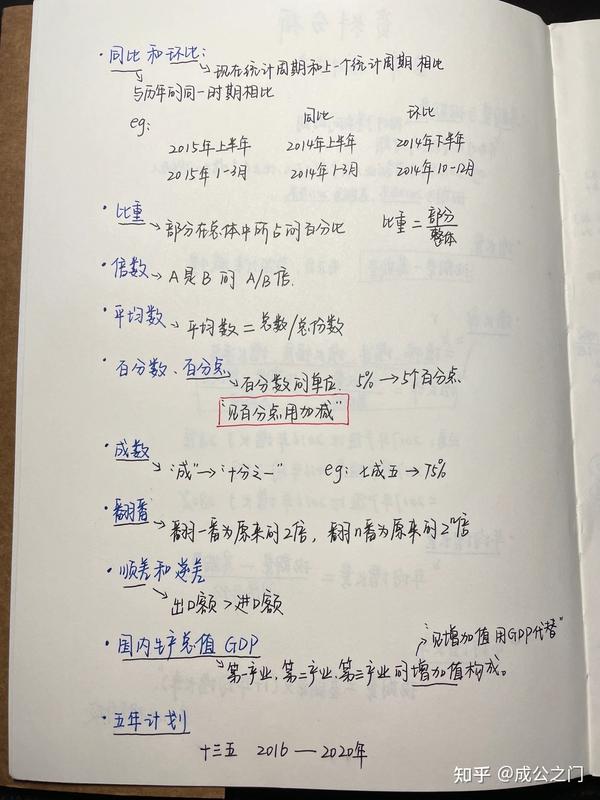 · 同比和环比:
现在统计周期和上一个统计周期相比
与历年的同一时期相比
eg:
同比 环比
2015年上半年 2014年上半年 2014年下半年
2015年1-3月 2014年1-3月 2014年10-12月
· 比重
部分在总体中所占的百分比 比重 = 部分/整体
· 倍数 A是B的 A/B倍.
· 平均数 平均数 = 总数/总份数
· 百分数、百分点
百分数的单位. 5% → 5个百分点
"见百分点用加减"
· 成数
"成" → "十分之一" eg: 七成五 → 75%
· 翻番
翻一番为原来的2倍, 翻n番为原来的2ⁿ倍
· 顺差和逆差
出口额 > 进口额
"见增加值用GDP代替"
· 国内生产总值 GDP
第一产业、第二产业、第三产业的增加值构成。
· 五年计划
十三五 2016 — 2020年
知乎 @成公之门